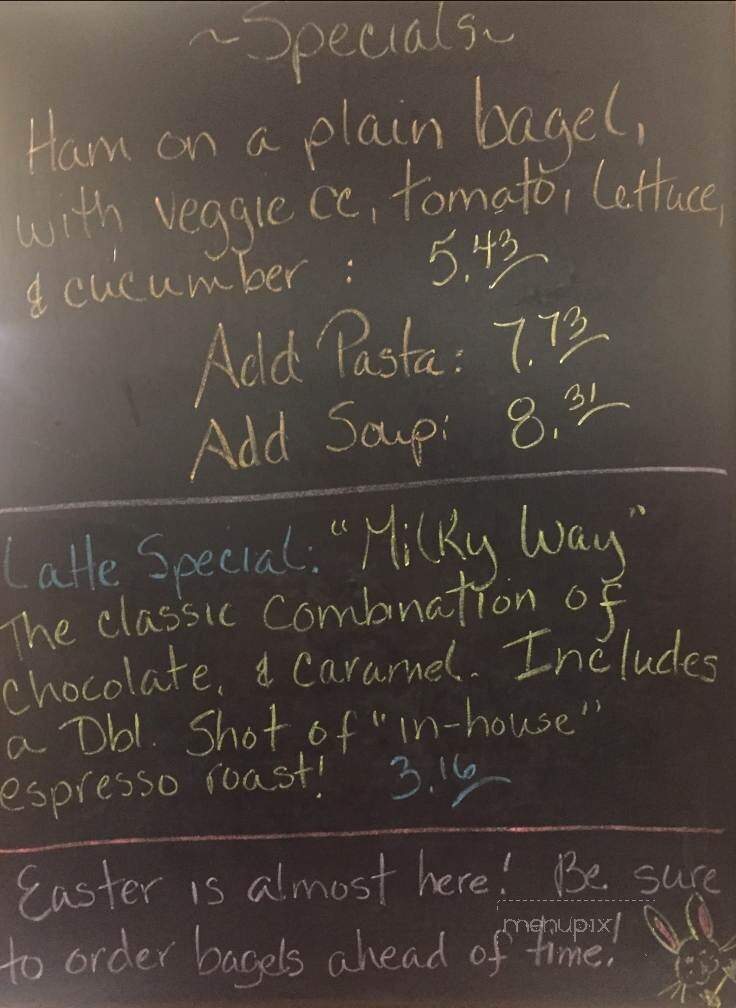 ~Specials~
Ham on a plain bagel,
with veggie cc, tomato, lettuce,
& cucumber : 5.43
Add Pasta: 7.73
Add Soup: 8.31
Latte Special: "Milky Way"
The classic combination of
chocolate, & caramel. Includes
a Dbl. Shot of "in-house"
espresso roast! 3.16
Easter is almost here! Be sure
to order bagels ahead of time!
menupix